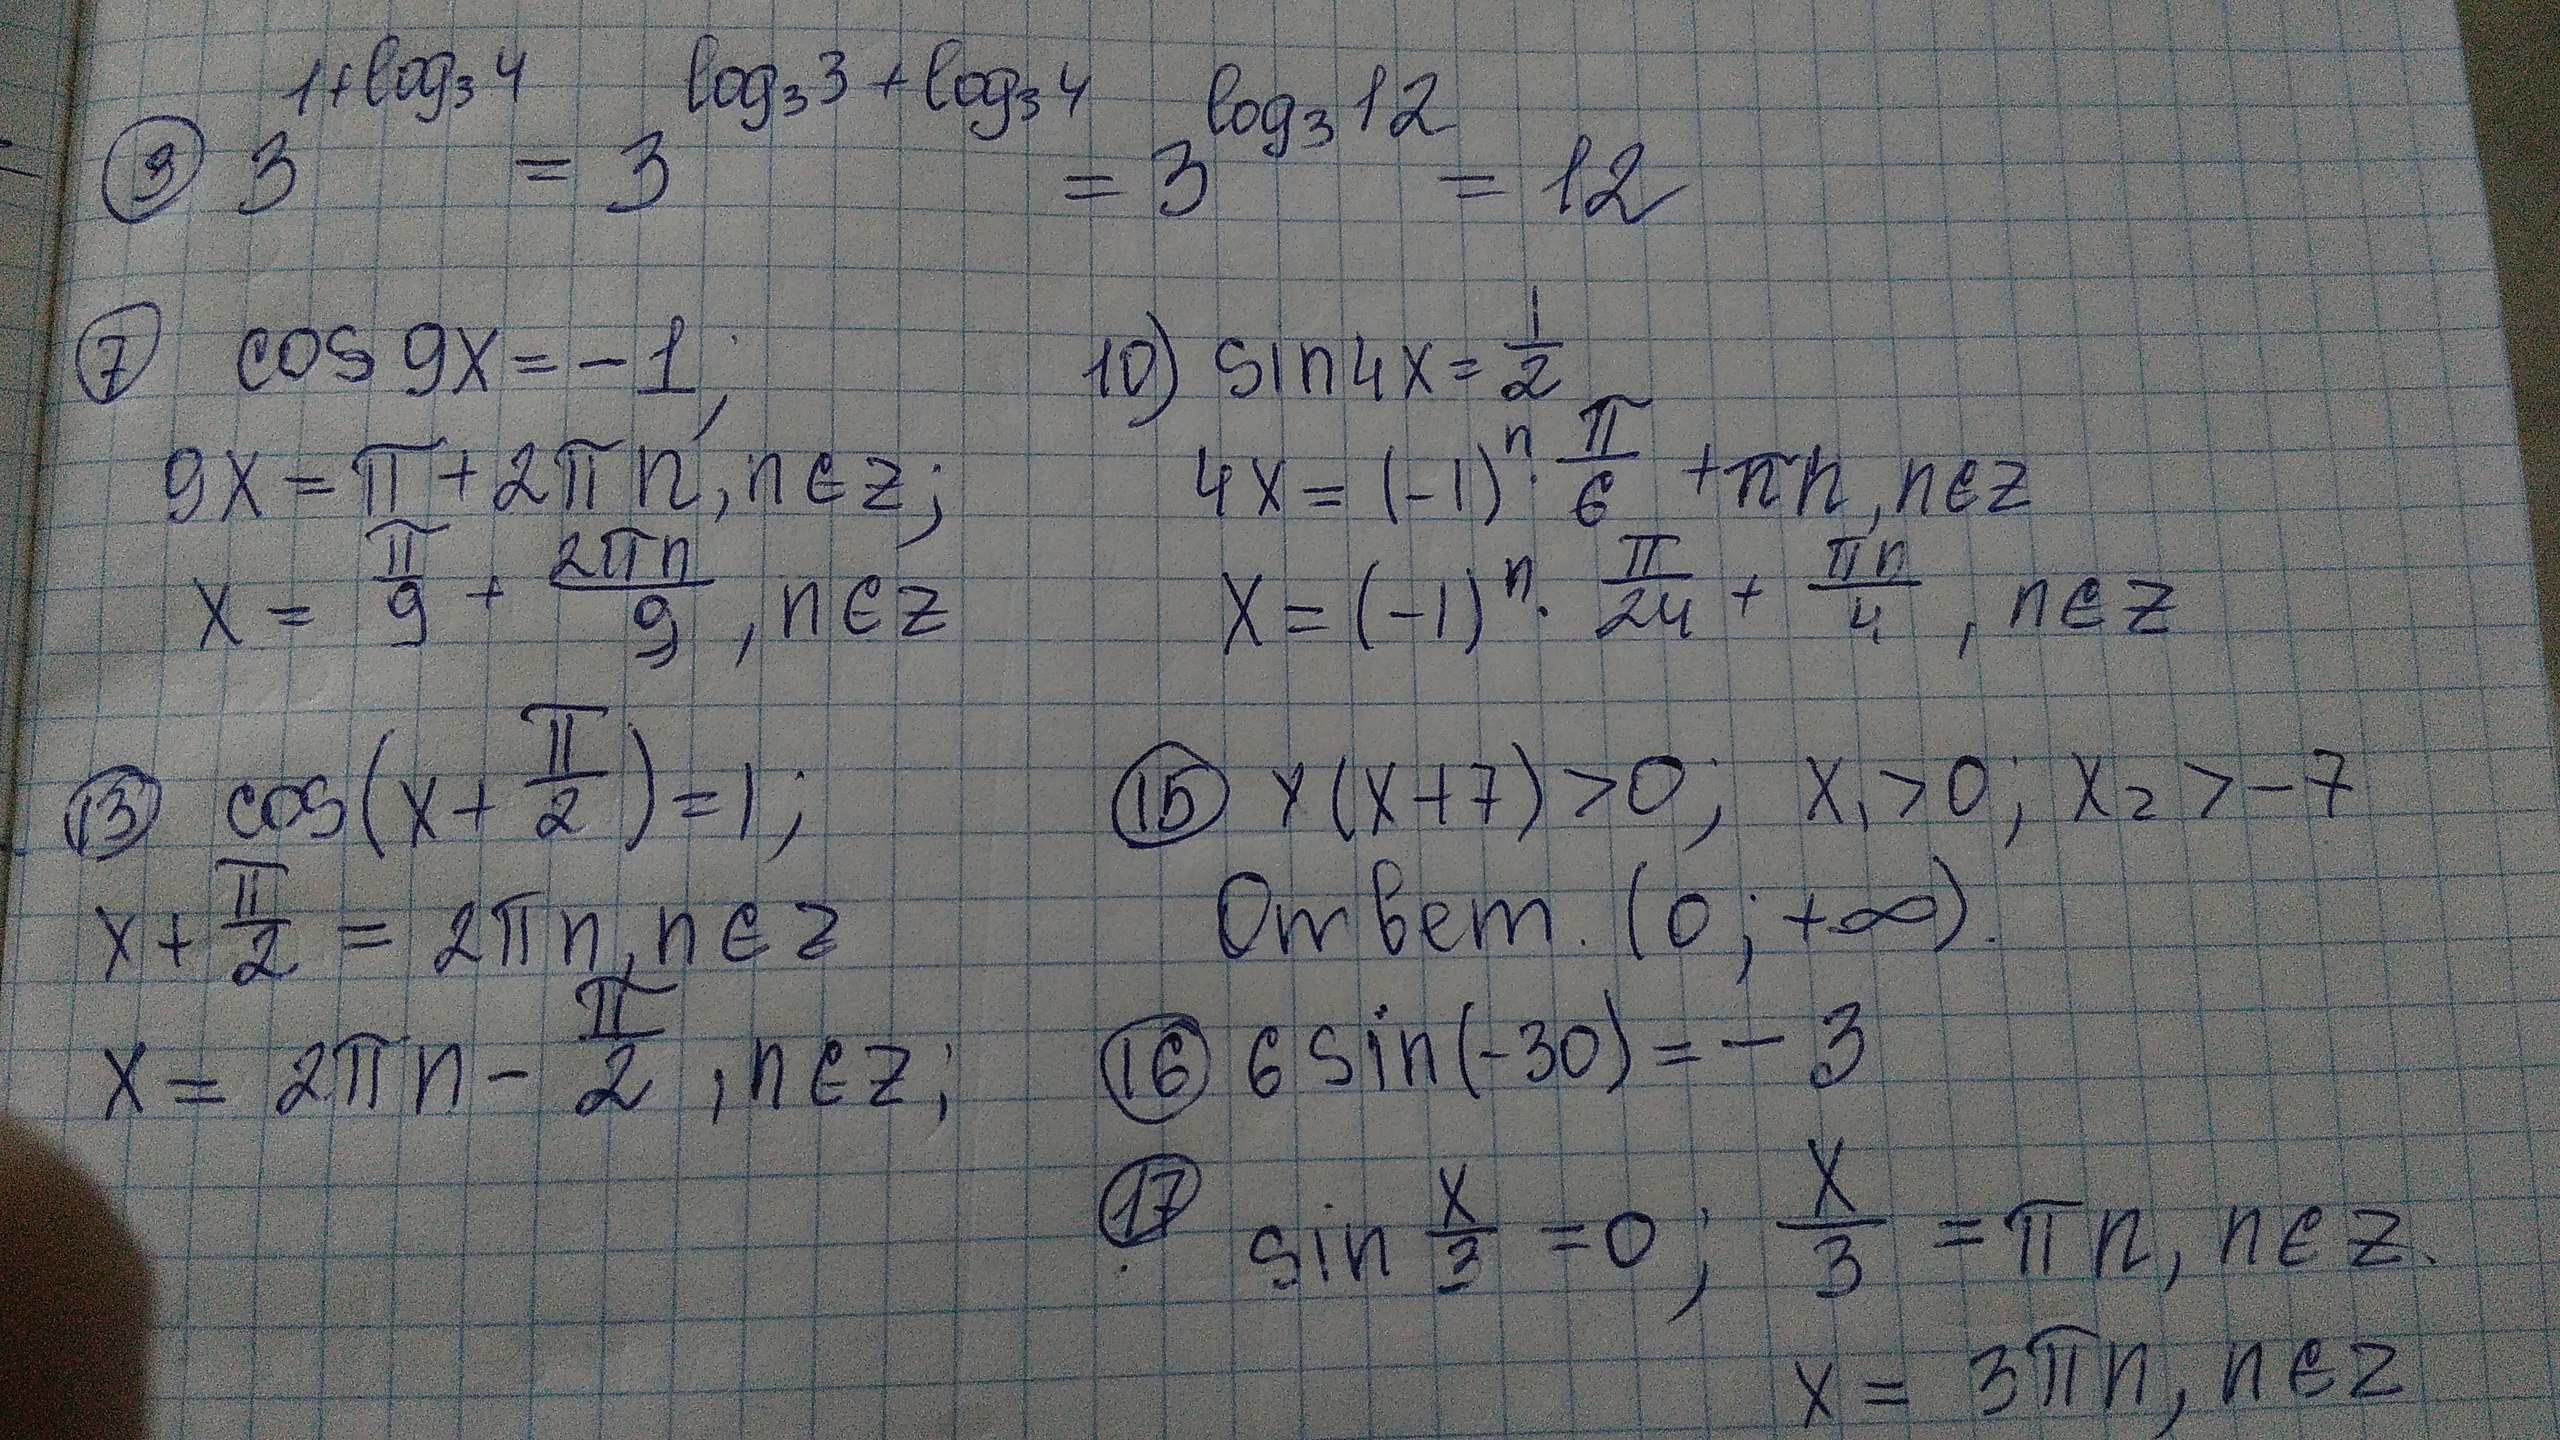 ③ 3^(1+log₃4) = 3^(log₃3 + log₃4) = 3^(log₃12) = 12
⑦ cos 9x = -1;
9x = π + 2πn, n∈z;
x = π/9 + 2πn/9, n∈z
10) sin 4x = 1/2
4x = (-1)ⁿ · π/6 + πn, n∈z
x = (-1)ⁿ · π/24 + πn/4, n∈z
⑬ cos(x + π/2) = 1;
x + π/2 = 2πn, n∈z
x = 2πn - π/2, n∈z;
⑮ x(x+7) > 0; x₁ > 0; x₂ > -7
Ответ. (0; +∞).
⑯ 6 sin(-30) = -3
⑰ sin x/3 = 0; x/3 = πn, n∈z.
x = 3πn, n∈z